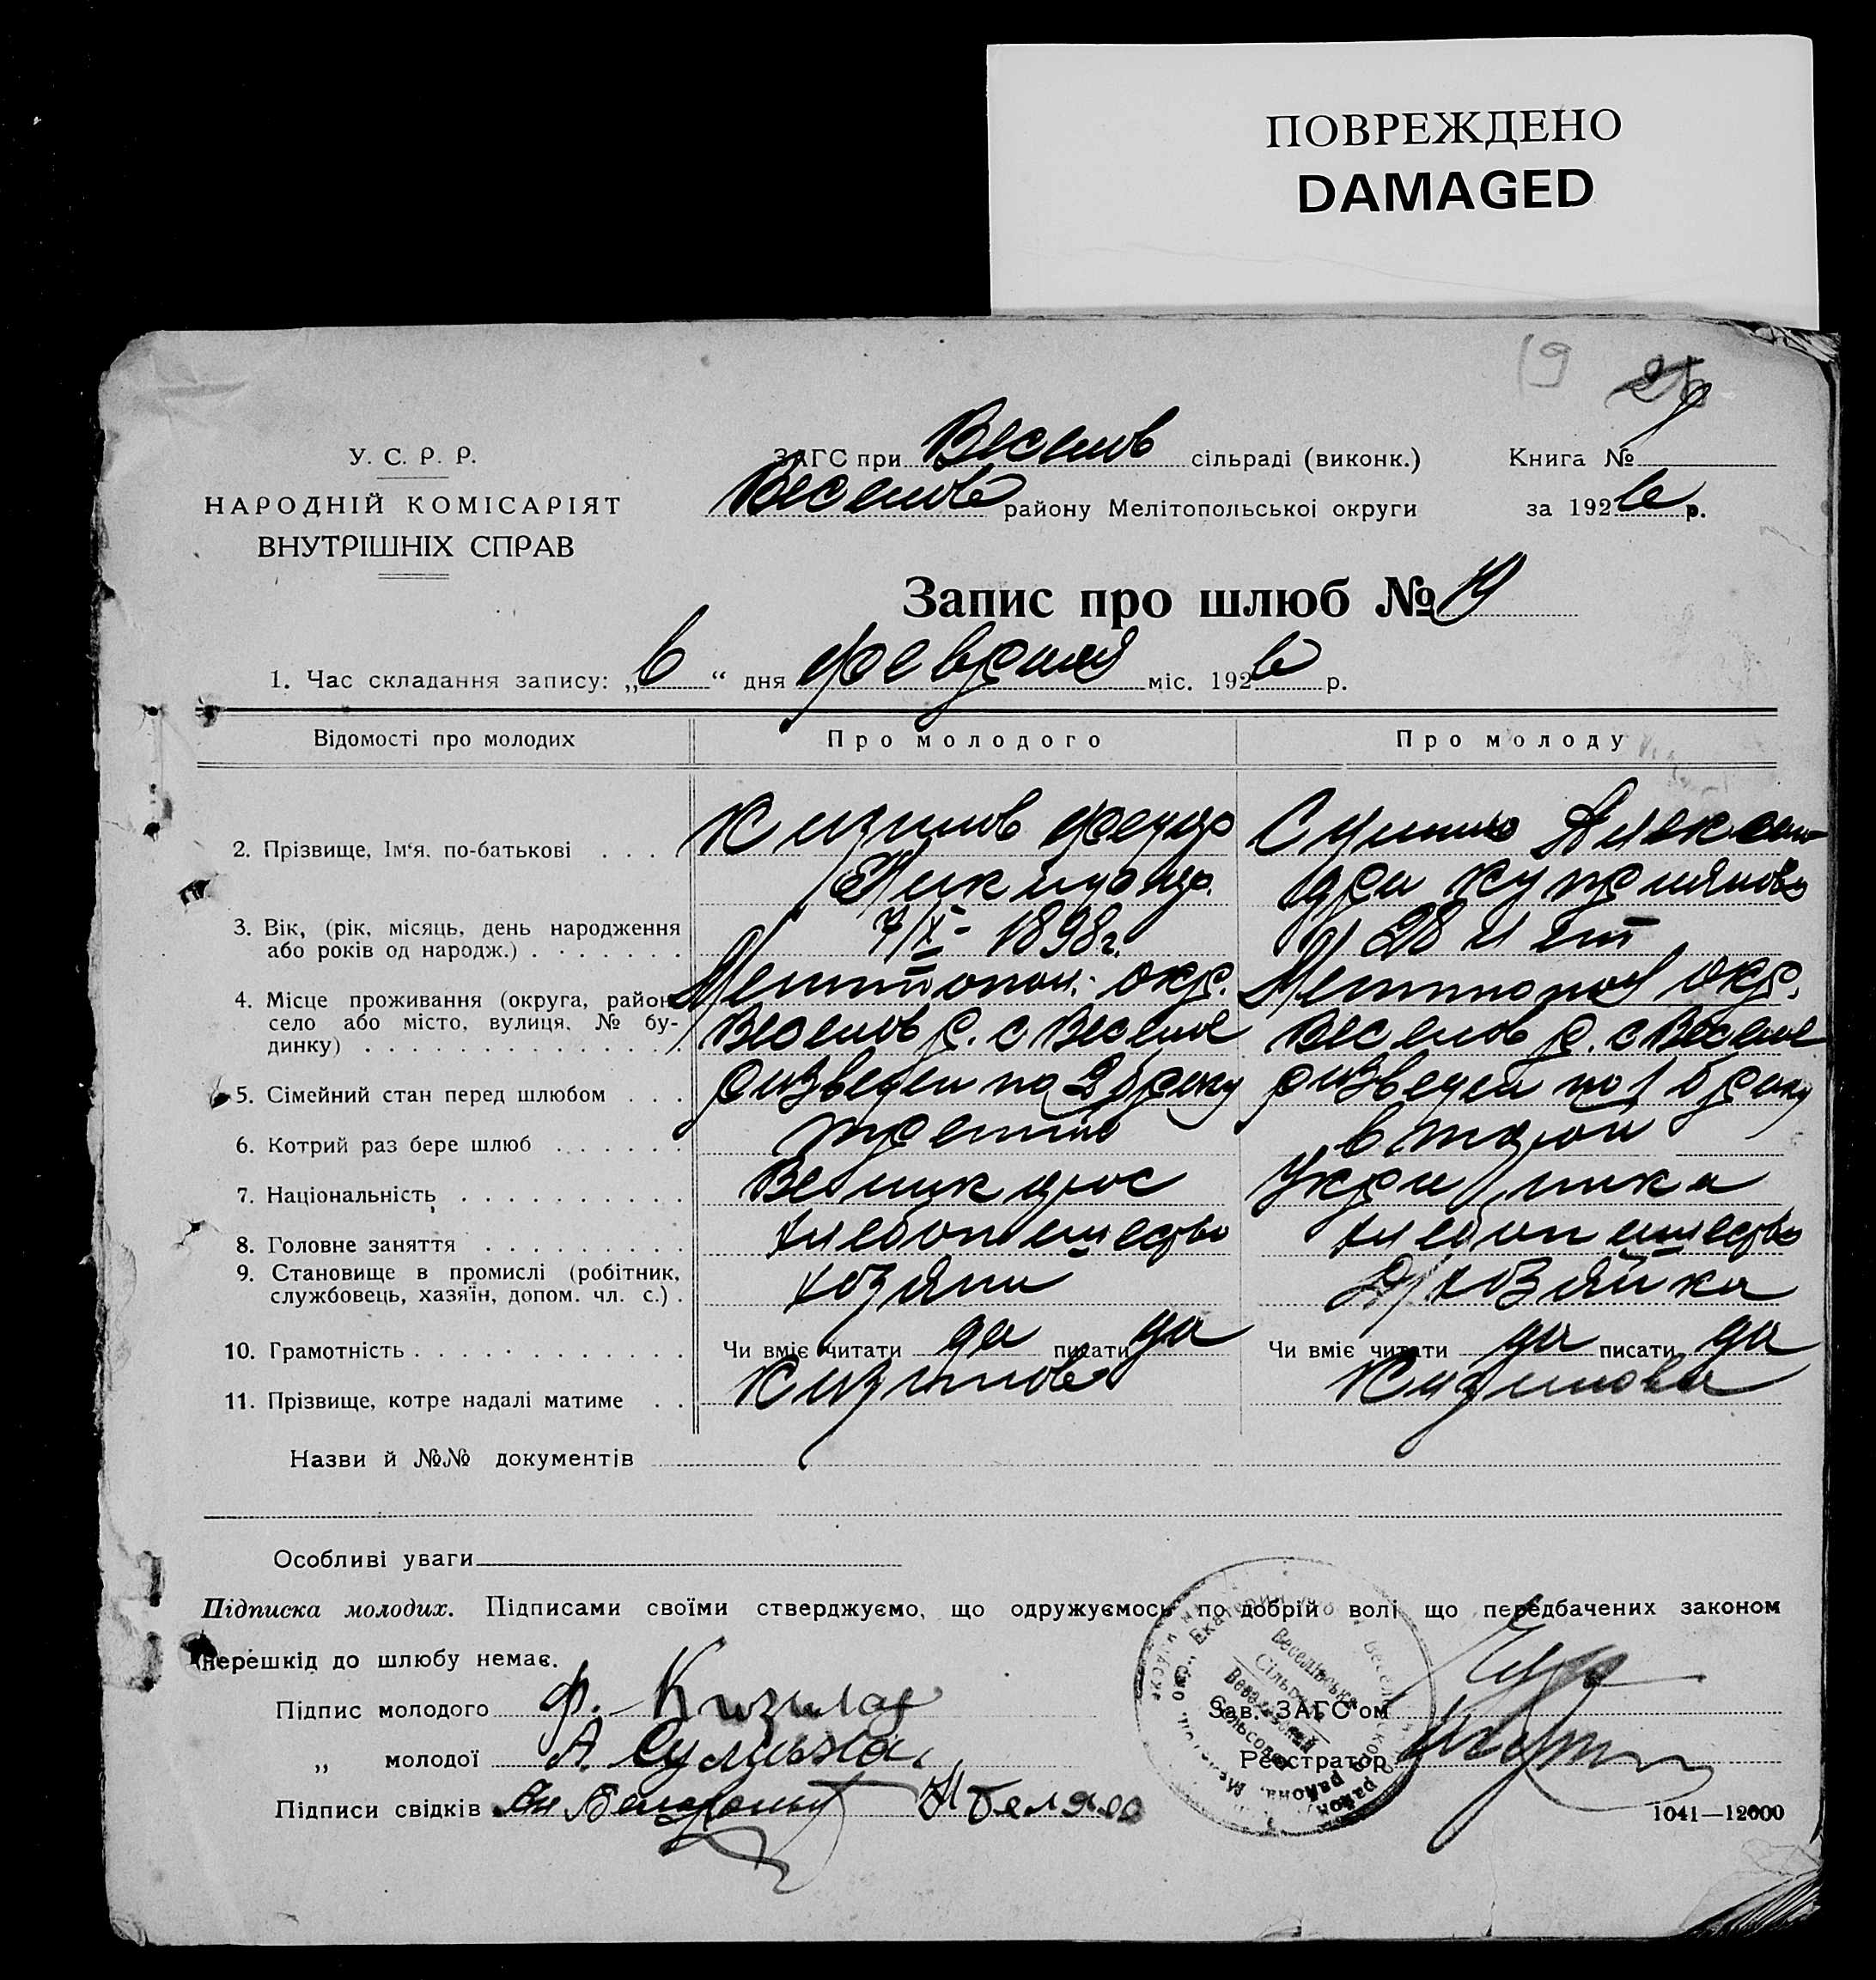 ПОВРЕЖДЕНО
DAMAGED
19
У. С. Р. Р.
НАРОДНІЙ КОМІСАРІЯТ
ВНУТРІШНІХ СПРАВ
ЗАГС при Веселов сільраді (виконк.)
Веселов району Мелітопольської округи
Книга №
за 1926 р.
Запис про шлюб № 19
1. Час складання запису: „6“ дня февраля міс. 1926 р.
Відомості про молодих Про молодого Про молоду
2. Прізвище, Ім'я, по-батькові . . . . Кизилов Федор Сулима Алексан
Никифор. дра Куприяновн
3. Вік, (рік, місяць, день народження
або років од народж.) . . . . . . . 1898 г. 28 лет
4. Місце проживання (округа, район, Мелитопол. окр. Мелитопол окр.
село або місто, вулиця, № бу- Веселов р. с Веселое Веселов р. с Веселое
динку) . . . . . . . . . . . . . .
5. Сімейний стан перед шлюбом . . . развед по 2 браку развед по 1 браку
6. Котрий раз бере шлюб . . . . . . третий второй
7. Національність . . . . . . . . . . Великорос Украинка
8. Головне заняття . . . . . . . . . хлебопашество хлебопашество
9. Становище в промислі (робітник,
службовець, хазяїн, допом. чл. с.) . хозяин хозяйка
10. Грамотність . . . . . . . . . . . . Чи вміє читати да писати да Чи вміє читати да писати да
11. Прізвище, котре надалі матиме . . Кизилов Кизилова
Назви й №№ документів
Особливі уваги
Підписка молодих. Підписами своїми стверджуємо, що одружуємось по добрій волі що передбачених законом
перешкід до шлюбу немає.
Підпис молодого Ф. Кизилов
„ молодої А. Сулима
Підписи свідків
Зав. ЗАГС'ом
Реєстратор
1041—12000